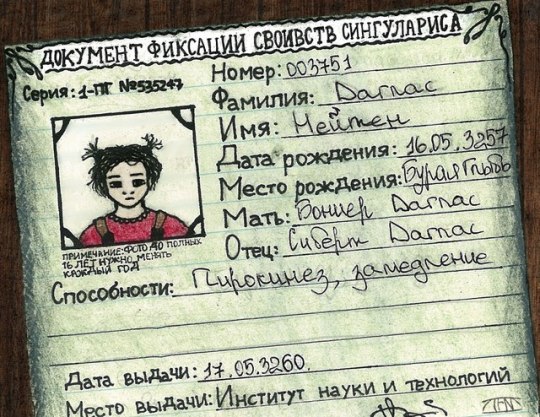 ДОКУМЕНТ ФИКСАЦИИ СВОИВСТВ СИНГУЛАРИСА
Серия: 1-ПГ №535247
Номер: 003751
Фамилия: Даглас
Имя: Нейтен
Дата рождения: 16.05.3257
Место рождения: Бурая Глыбь
Мать: Боншер Даглас
Отец: Сиберт Даглас
ПРИМЕЧАНИЕ: ФОТО ДО ПОЛНЫХ
16 ЛЕТ НУЖНО МЕНЯТЬ
КАЖДЫЙ ГОД
Способности: Пирокинез, замедление
Дата выдачи: 17.05.3260.
Место выдачи: Институт науки и технологий